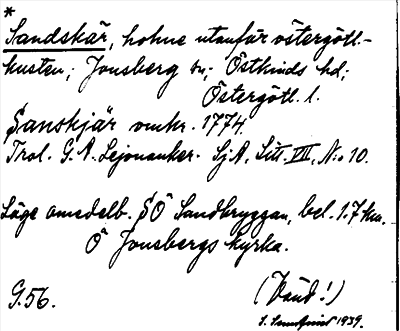 *
Sandskär, holme utanför östergötl.-
kusten; Jonsberg sn; Östkinds hd;
Östergötl. l.
Sanskjär omkr. 1774.
Trol. G. A. Lejonanker. SjA, Litt. VII, N:o 10.
Läge omedelb. SÖ Sandbryggan, bel. 1.7 km.
Ö Jonsbergs kyrka.
G.56.
(Vänd!)
1939.